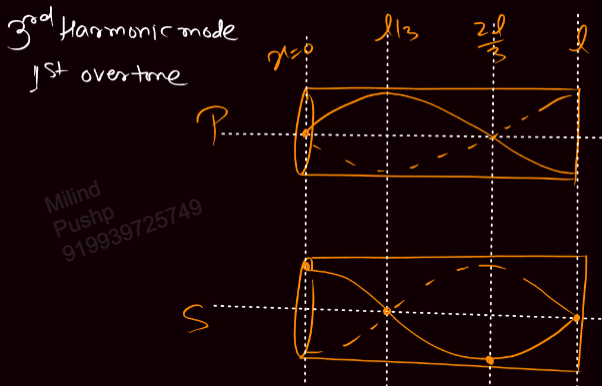 3rd Harmonic mode
1st overtone
x=0 l/3 2l/3 l
P
Milind
Pushp
919939725749
S